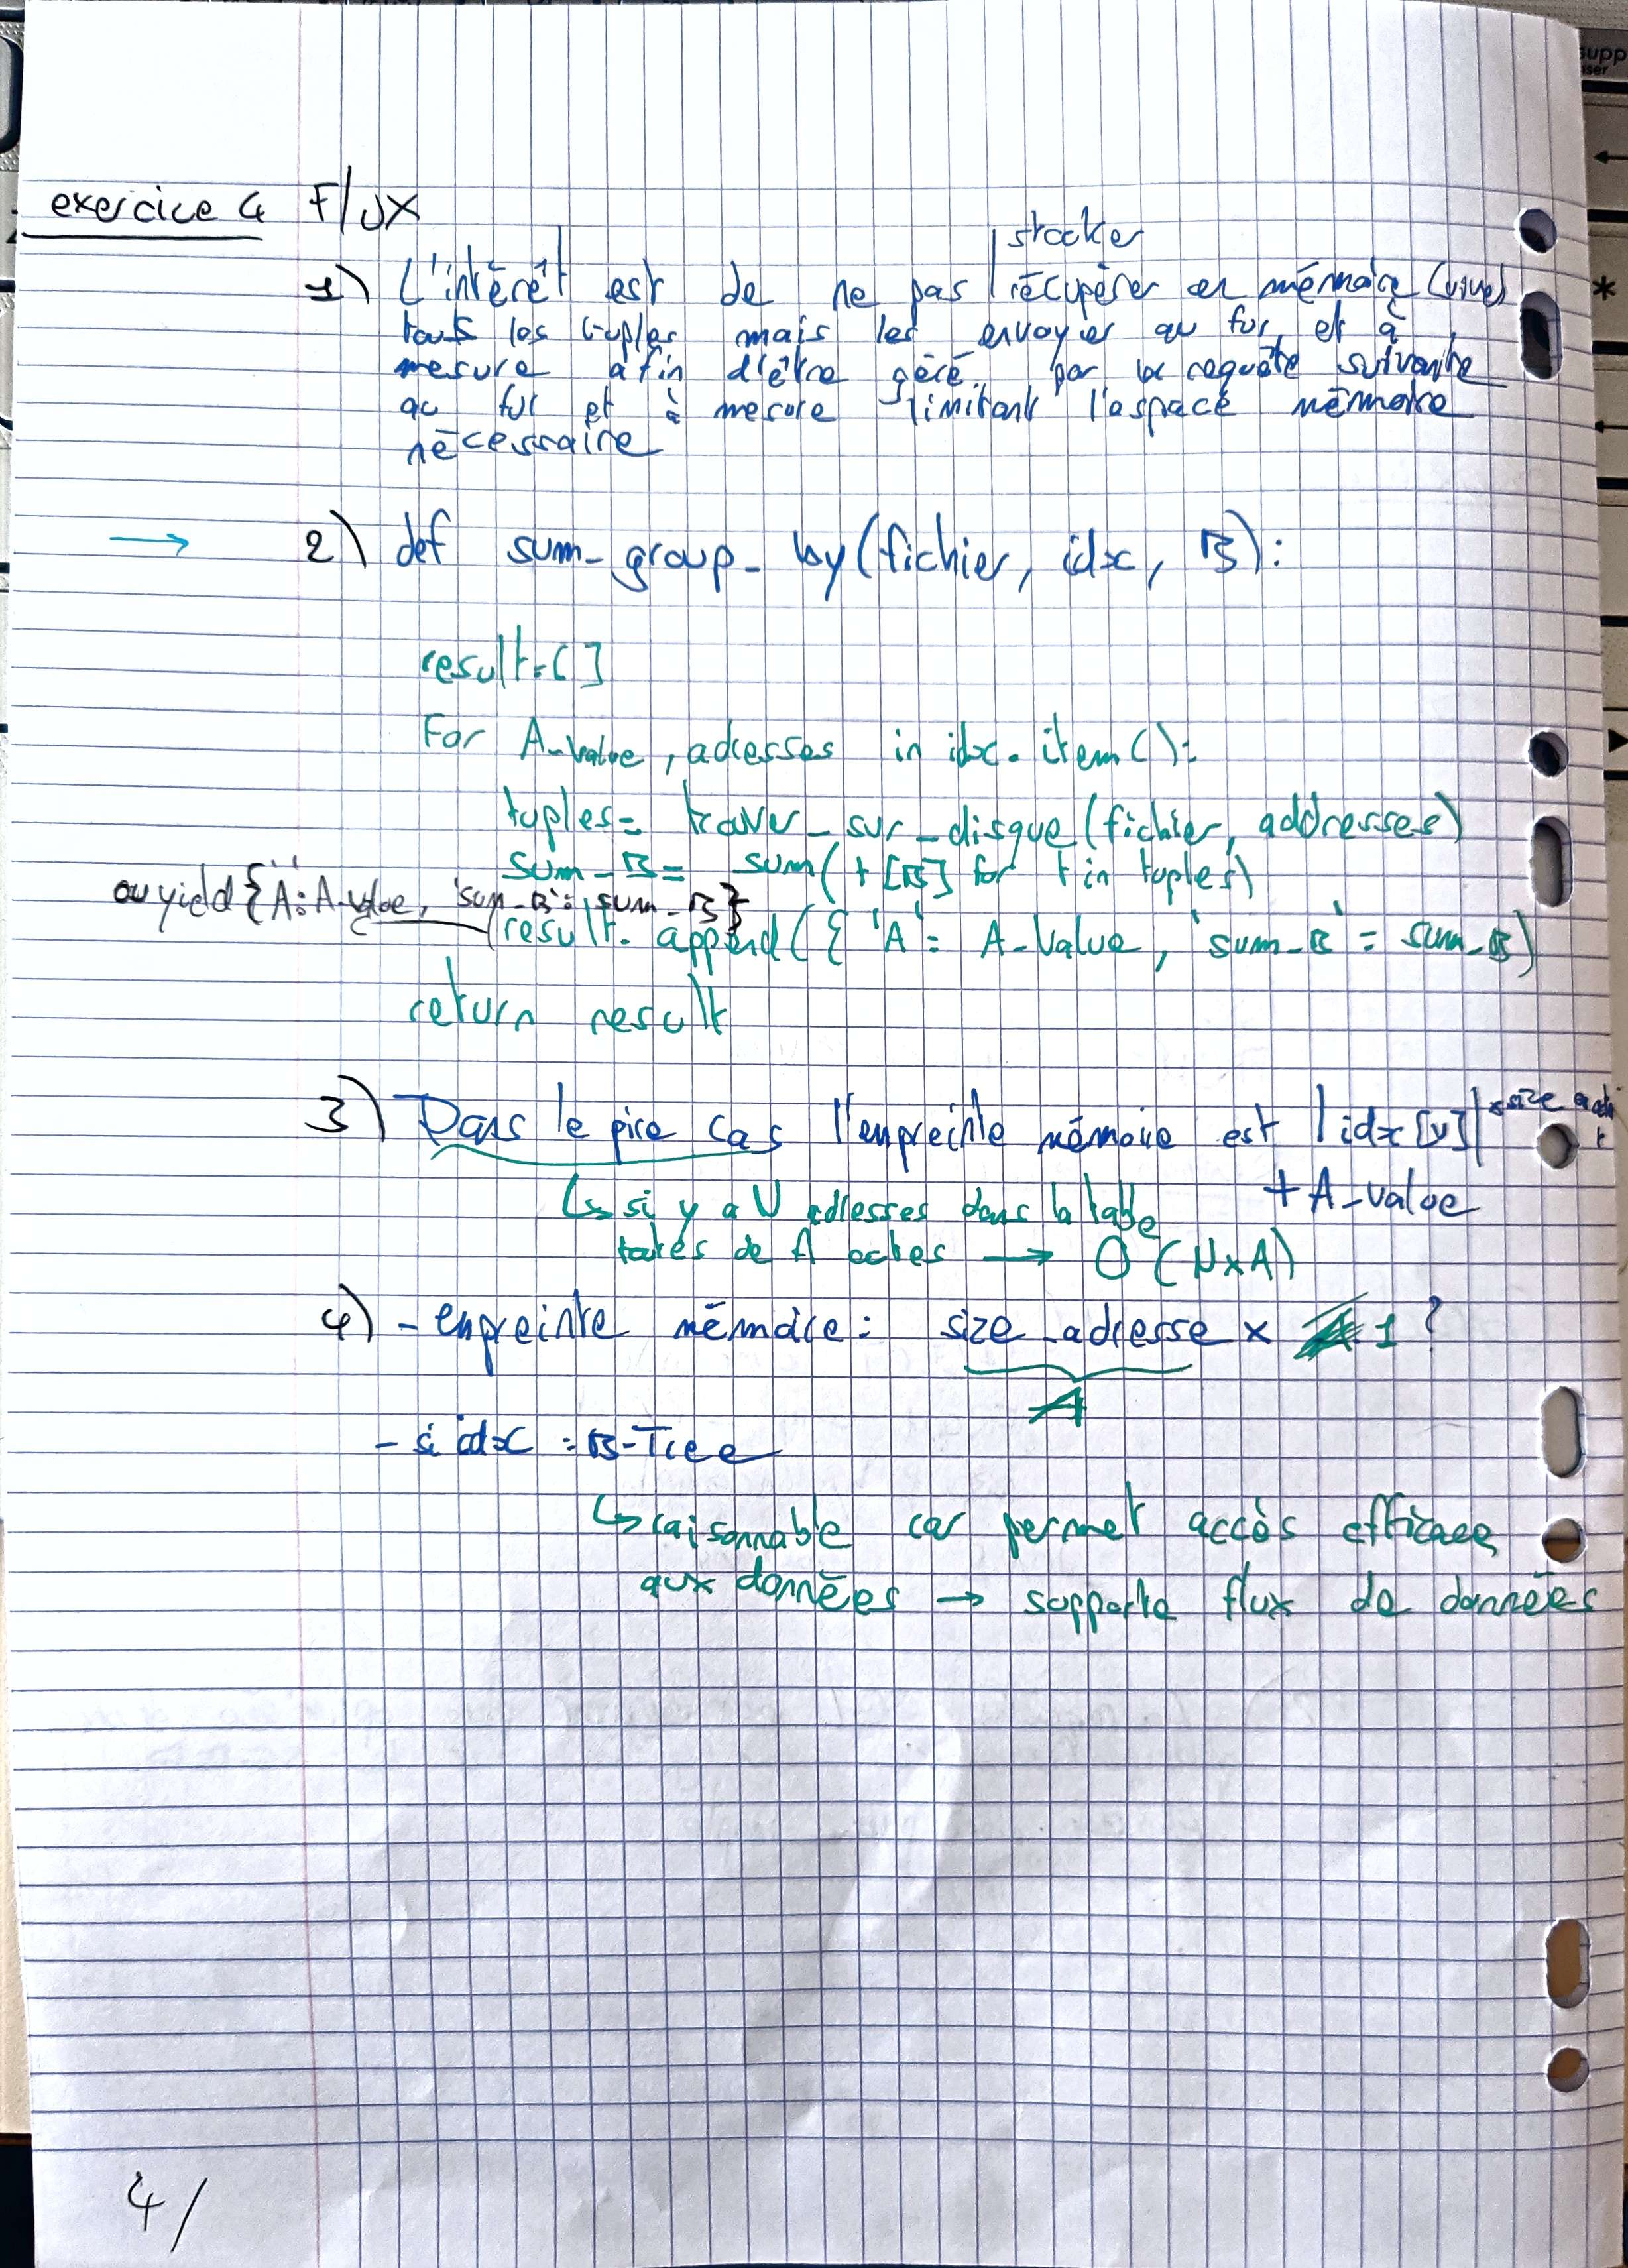 exercice 4 Flux
stocker
1) L'intérêt est de ne pas récupérer en mémoire (vive)
tous les tuples mais les envoyer au fur et à
mesure afin d'être géré par la requête suivante
au fur et à mesure limitant l'espace mémoire
nécessaire
→ 2) def sum_group_by(fichier, idx, B):
result=[]
For A_value, adresses in idx.item():
tuples= trouver_sur_disque(fichier, addresses)
sum_B= sum(t[B] for t in tuples)
ou yield{'A': A_value, 'sum_B': sum_B}
result.append({'A'= A_value, 'sum_B'= sum_B)
return result
3) Dans le pire cas l'enpreinte mémoire est |idx[v]| × size
+ A_value
↳ si y a N adresses dans la table
toutes de A octes → O(N×A)
4) - enpreinte mémoire: size_adresse × 1?
A
- si idx = B-Tree
↳ raisonnable car permet accès efficace
aux données → supporte flux de données
4/
supp
*